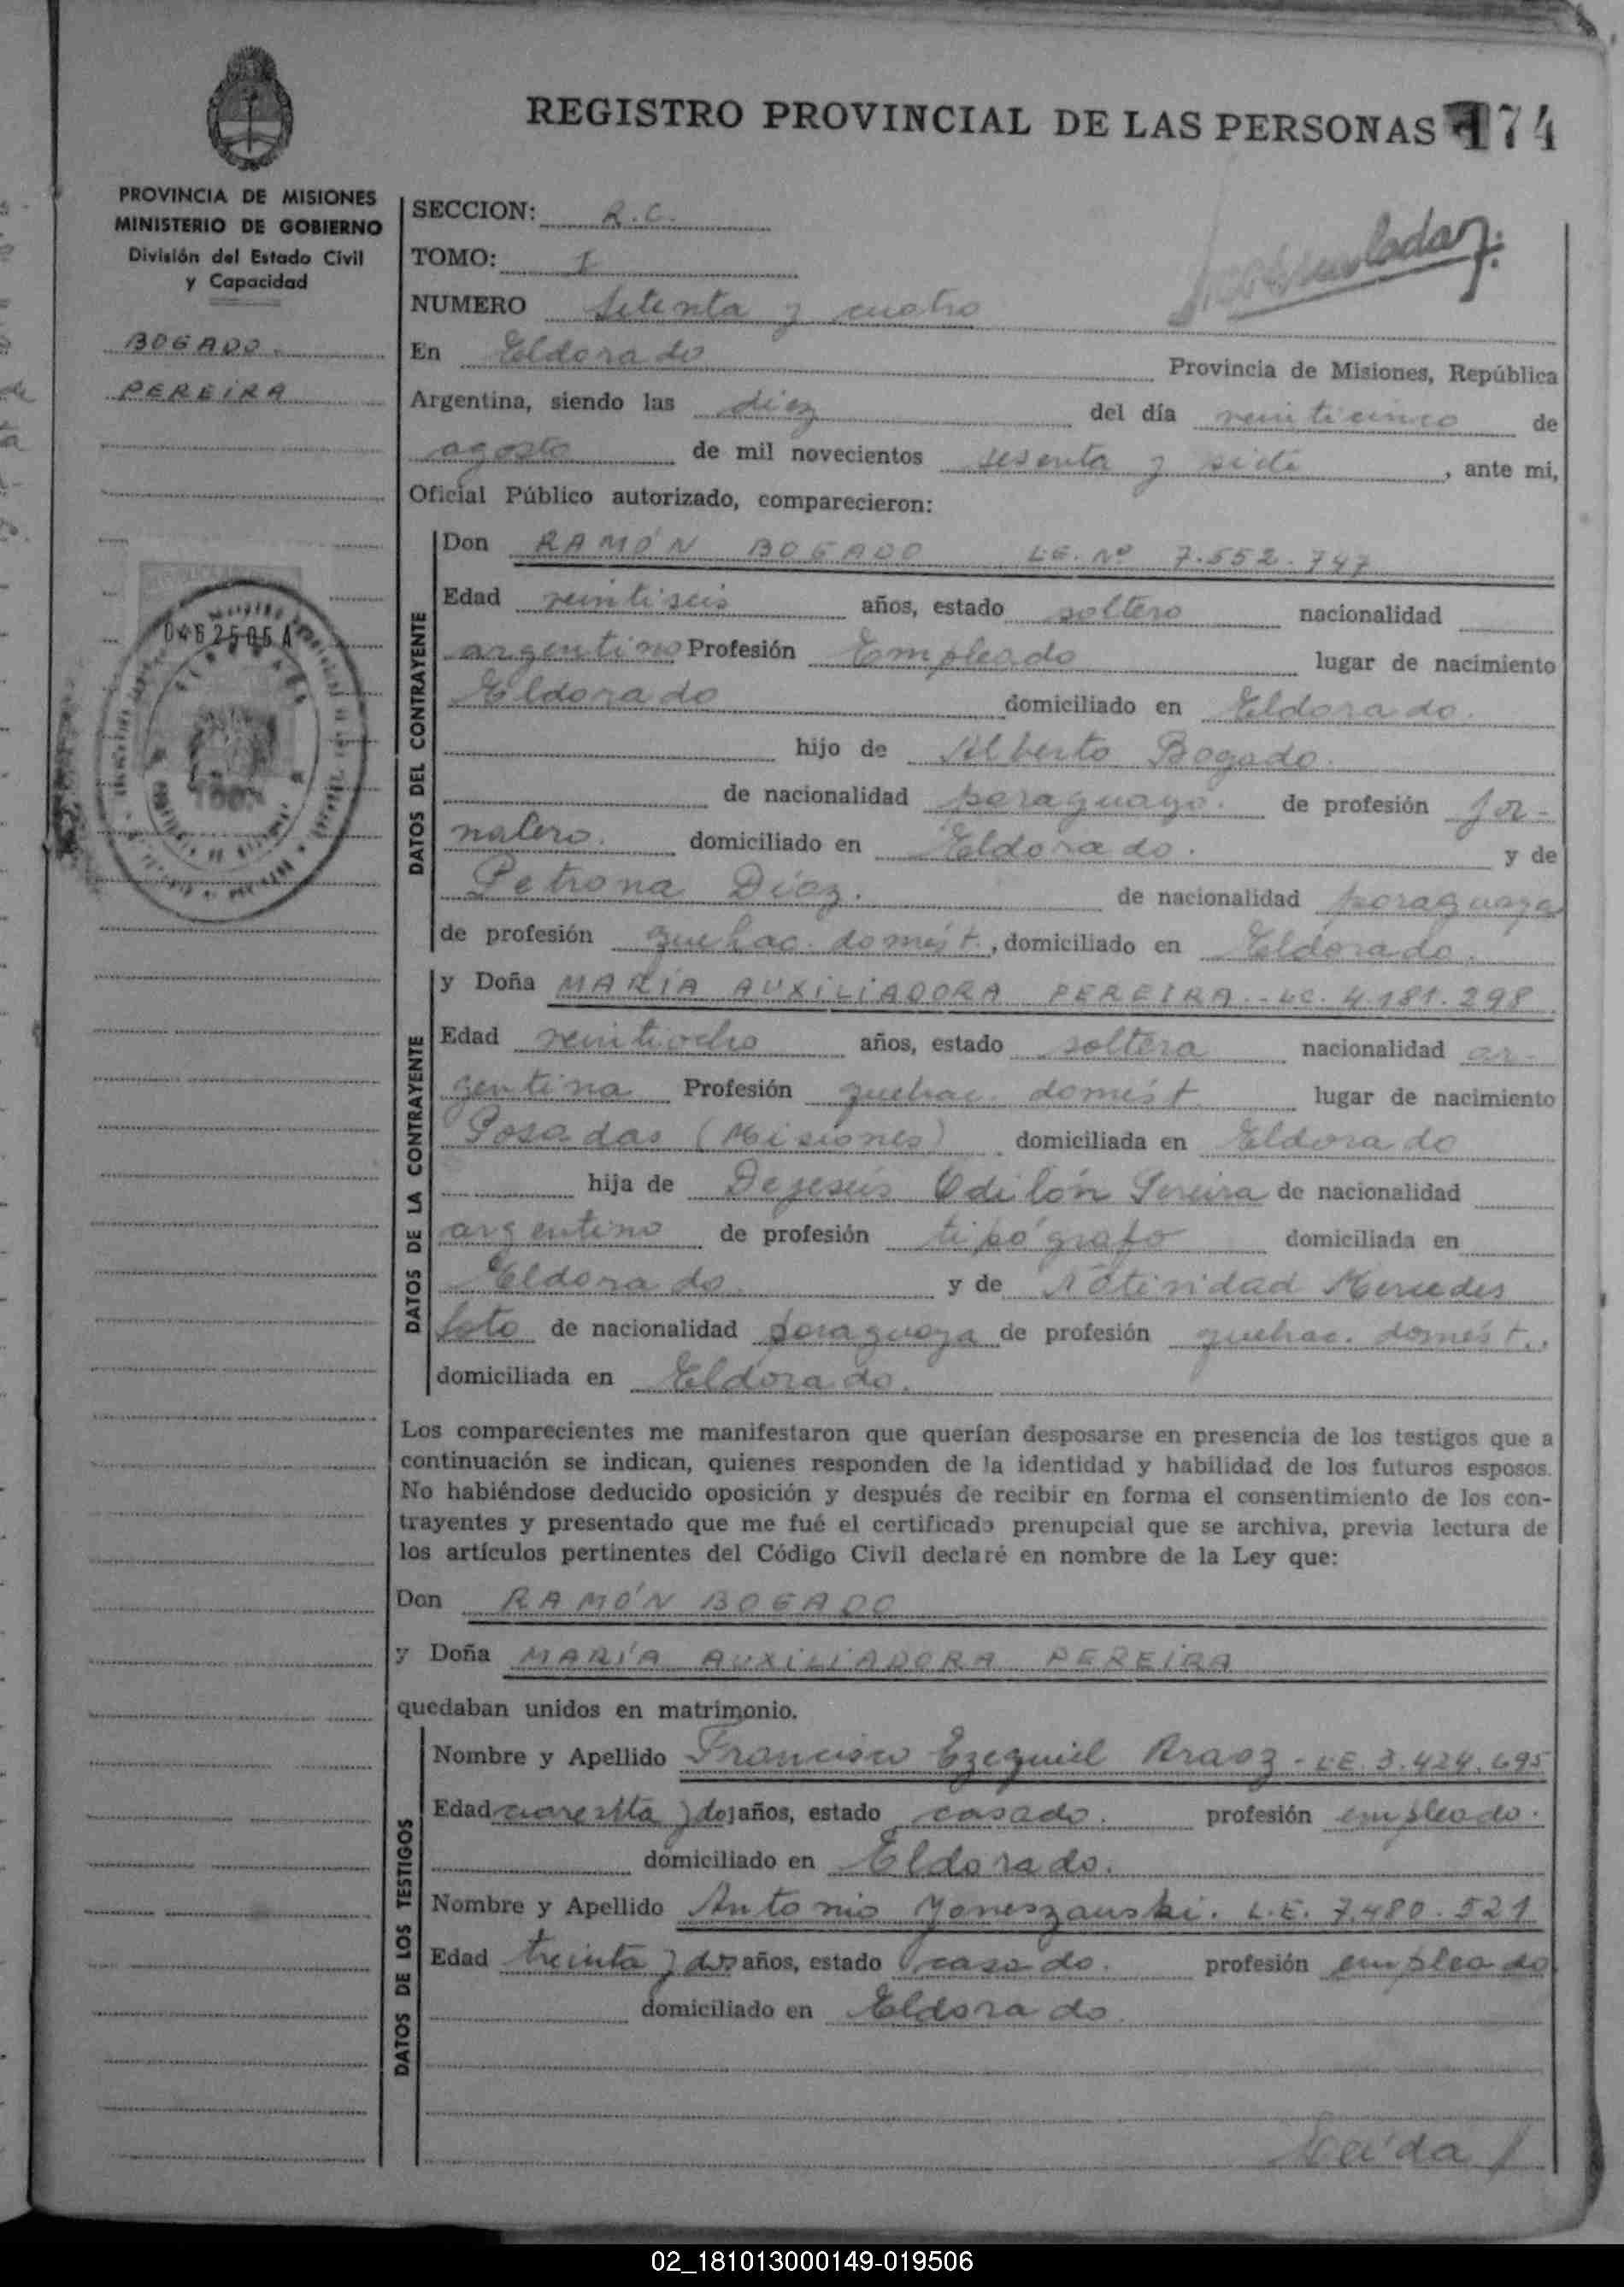 REGISTRO PROVINCIAL DE LAS PERSONAS 174
PROVINCIA DE MISIONES
MINISTERIO DE GOBIERNO
División del Estado Civil
y Capacidad
BOGADO
PEREIRA
0462505A
SECCION: R.C.
TOMO: I
NUMERO Setenta y cuatro
En Eldorado Provincia de Misiones, República
Argentina, siendo las diez del día veinticinco de
agosto de mil novecientos sesenta y siete, ante mi,
Oficial Público autorizado, comparecieron:
DATOS DEL CONTRAYENTE
Don RAMÓN BOGADO LE. Nº 7.552.747
Edad veintiseis años, estado soltero nacionalidad
argentino Profesión Empleado lugar de nacimiento
Eldorado domiciliado en Eldorado.
hijo de Alberto Bogado.
de nacionalidad paraguayo. de profesión jor-
nalero. domiciliado en Eldorado. y de
Petrona Díaz. de nacionalidad paraguaya
de profesión quehac. domést., domiciliado en Eldorado.
DATOS DE LA CONTRAYENTE
y Doña MARÍA AUXILIADORA PEREIRA.- LC. 4.181.298
Edad veintiocho años, estado soltera nacionalidad ar-
gentina Profesión quehac. domést lugar de nacimiento
Posadas (Misiones) domiciliada en Eldorado
hija de Dejesús Odilón Pereira de nacionalidad
argentino de profesión tipógrafo domiciliada en
Eldorado. y de Natividad Mercedes
Soto de nacionalidad paraguaya de profesión quehac. domést.,
domiciliada en Eldorado.
Los comparecientes me manifestaron que querían desposarse en presencia de los testigos que a
continuación se indican, quienes responden de la identidad y habilidad de los futuros esposos.
No habiéndose deducido oposición y después de recibir en forma el consentimiento de los con-
trayentes y presentado que me fué el certificado prenupcial que se archiva, previa lectura de
los artículos pertinentes del Código Civil declaré en nombre de la Ley que:
Don RAMÓN BOGADO
y Doña MARÍA AUXILIADORA PEREIRA
quedaban unidos en matrimonio.
DATOS DE LOS TESTIGOS
Nombre y Apellido Francisco Ezequiel Araoz - LE. 3.424.695
Edad cuarenta y dos años, estado casado. profesión empleado.
domiciliado en Eldorado.
Nombre y Apellido Antonio Yaneszauski. L.E. 7.480.521
Edad treinta y dos años, estado casado. profesión empleado
domiciliado en Eldorado
Leída
02_181013000149-019506